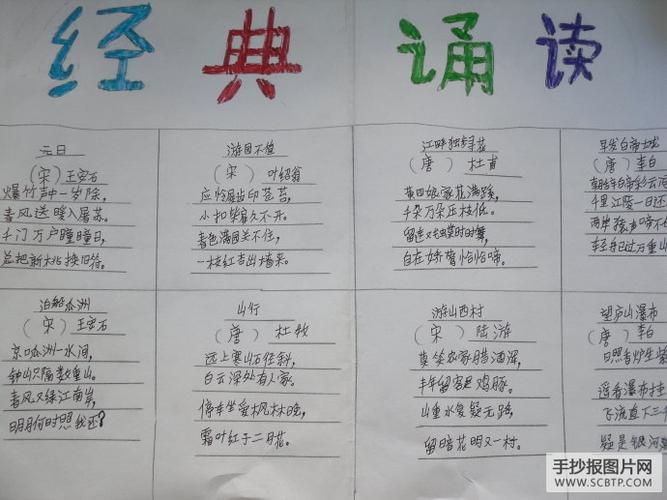 经典诵读
元日
（宋）王安石
爆竹声中一岁除，
春风送暖入屠苏。
千门万户瞳瞳日，
总把新桃换旧符。
游园不值
（宋）叶绍翁
应怜屐齿印苍苔，
小扣柴扉久不开。
春色满园关不住，
一枝红杏出墙来。
江畔独步寻花
（唐）杜甫
黄四娘家花满蹊，
千朵万朵压枝低。
留连戏蝶时时舞，
自在娇莺恰恰啼。
早发白帝城
（唐）李白
朝辞白帝彩云间
千里江陵一日还
两岸猿声啼不
轻舟已过万重山
泊船瓜洲
（宋）王安石
京口瓜洲一水间，
钟山只隔数重山。
春风又绿江南岸，
明月何时照我还？
山行
（唐）杜牧
远上寒山石径斜，
白云深处有人家。
停车坐爱枫林晚，
霜叶红于二月花。
游山西村
（宋）陆游
莫笑农家腊酒浑，
丰年留客足鸡豚。
山重水复疑无路，
留暗花明又一村。
望庐山瀑布
（唐）李白
日照香炉生紫
遥看瀑布挂
飞流直下三
疑是银河
手抄报图片网
WWW.SCBTP.COM